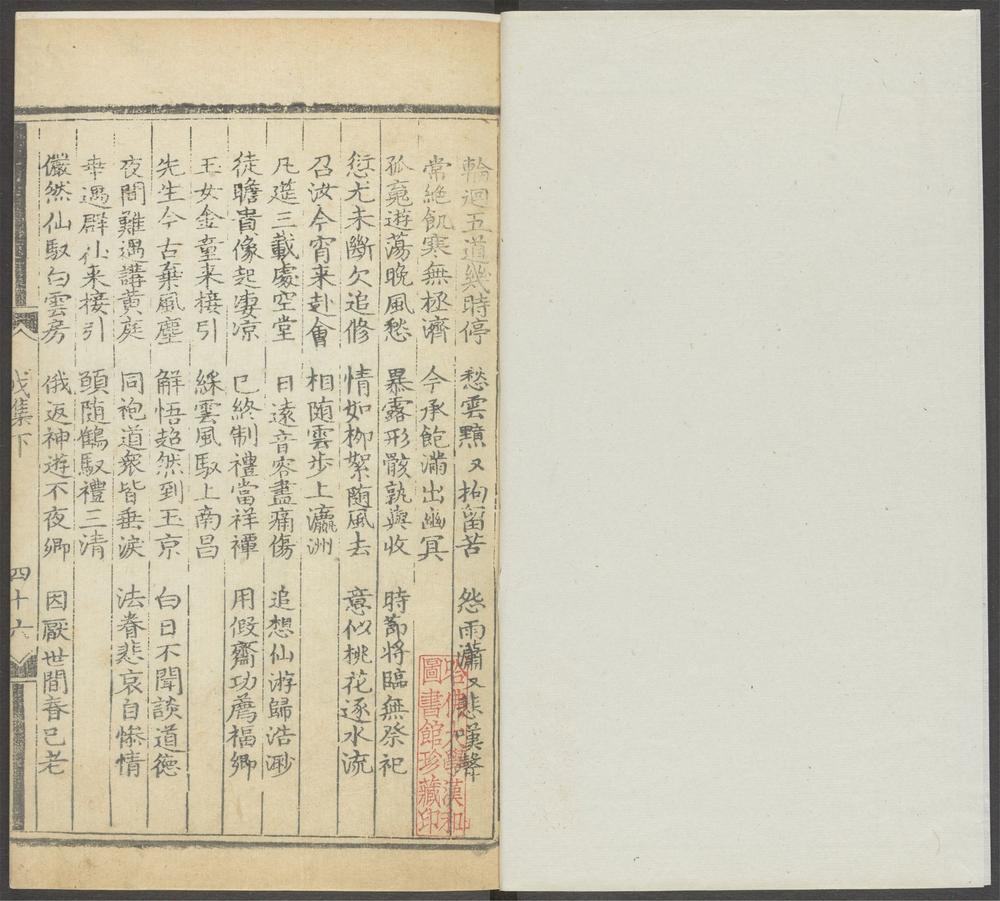 輪迴五道幾時停 愁雲黯又拘留苦 怨雨瀟又悲嘆聲
常絶飢寒無極濟 今承飽滿出幽冥
孤䰟遊蕩晚風愁 暴露形骸孰與收 時節將臨無祭祀
愆尤未斷欠追修 情如柳絮随風去 意似桃花逐水流
召汝今宵来赴會 相随雲歩上瀛洲
凡筵三載處空堂 日遠音容盡痛傷 追想仙游歸浩渺
徒瞻貴像起凄凉 已終制禮當祥禫 用假齋功薦福卿
玉女金童来接引 綵雲風馭上南昌
先生今古棄風塵 觧悟超然到玉京 白日不聞談道德
夜間難遇講黃庭 同袍道衆皆垂淚 法眷悲哀自惨情
幸遇辟小来接引 頭随鶴馭禮三清
儼然仙馭白雲房 俄返神遊不夜鄉 因厭世間春已老
戊集下 四十六
哈佛大學漢和
圖書館珍藏印